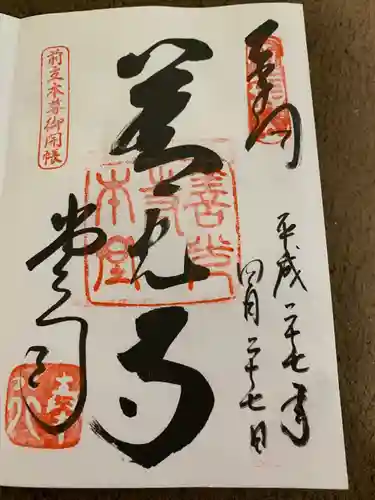 平成二十七年
四月二十七日
善光寺
善光
寺
本堂
前立本尊御開帳
堂司